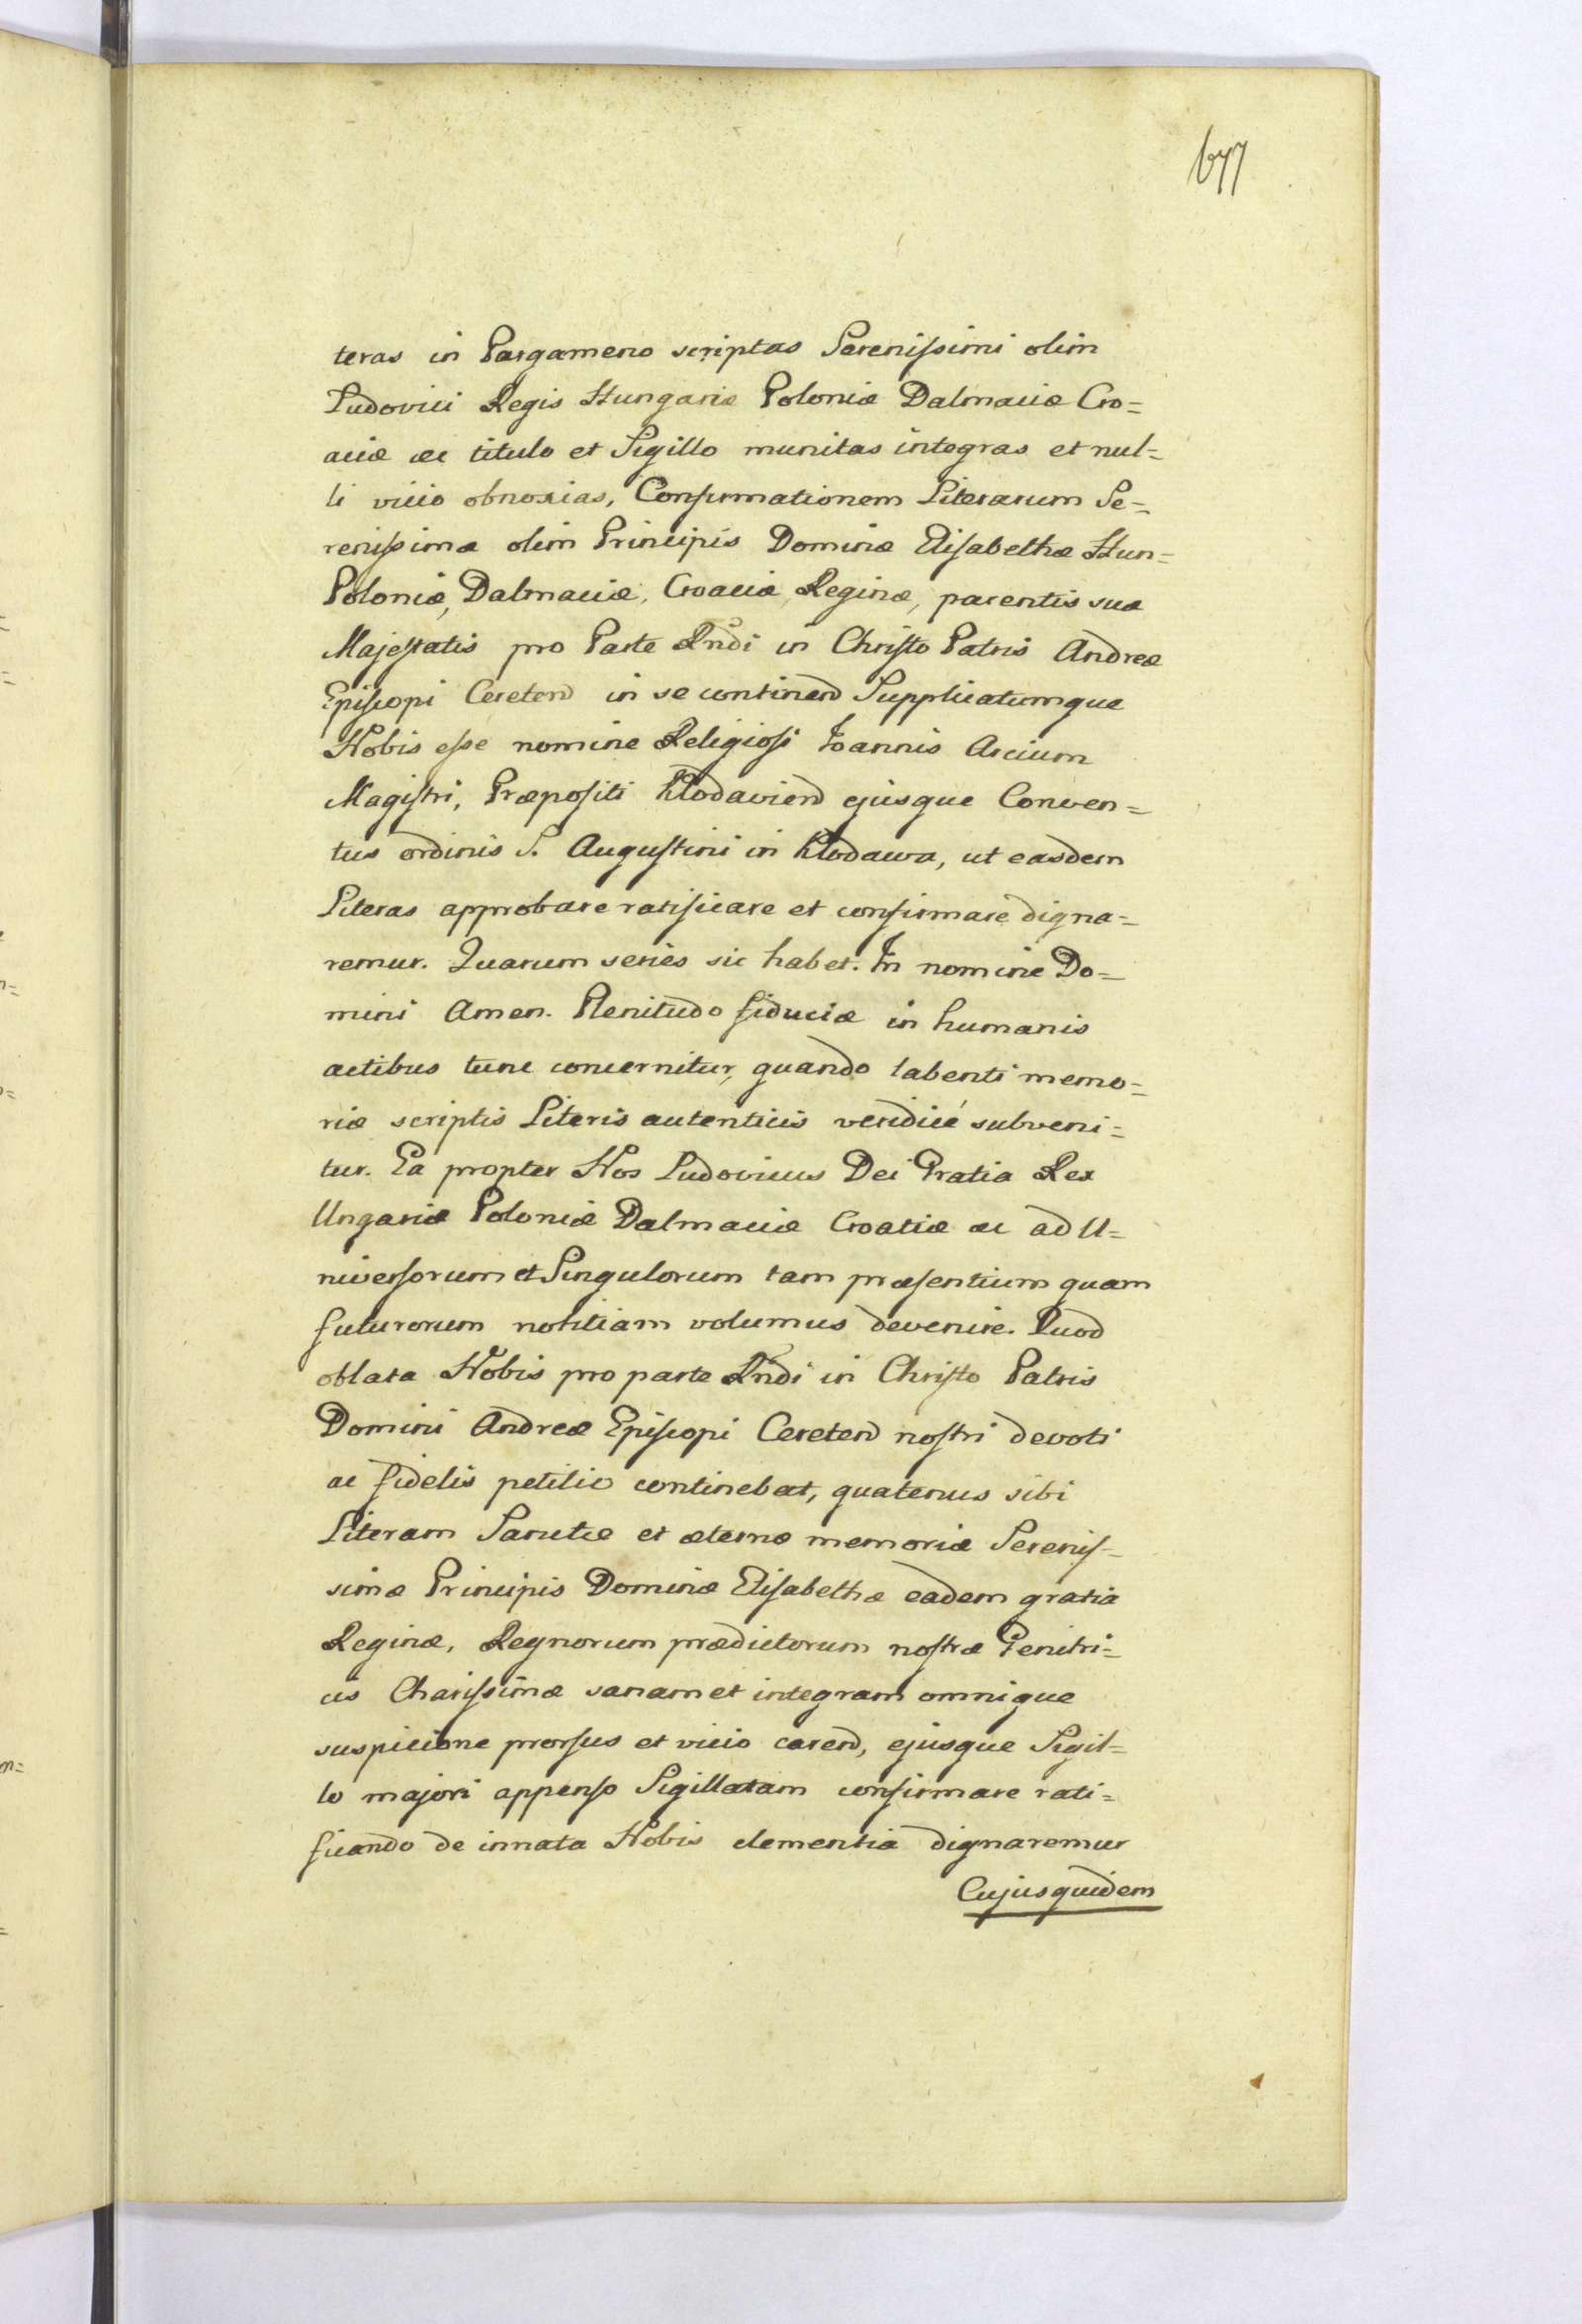 677
teras in Pargameno scriptas Serenissimi olim
Ludovici Regis Hungariæ Poloniæ Dalmaciæ Cro=
aciæ ac titulo et Sigillo munitas integras et nul=
li vicio obnoxias, Confirmationem Literarum Se=
renissimæ olim Principis Dominæ Elisabethæ Hun=
Poloniæ, Dalmaciæ, Croaciæ Reginæ, parentis suæ
Majestatis pro Parte Rndi in Christo Patris Andreæ
Episcopi Cereten in se continen Supplicatumque
Nobis esse nomine Religiosi Joannis Arcium
Magistri, Præpositi Klodavien ejusque Conven=
tus ordinis S. Augustini in Klodawa, ut easdem
Literas approbare ratificare et confirmare digna=
remur. Quarum series sic habet. In nomine Do=
mini Amen. Plenitudo fiduciæ in humanis
actibus tunc concernitur, quando labenti memo=
riæ scriptis Literis autenticis veridicé subveni=
tur. Ea propter Nos Ludovicus Dei Gratia Rex
Ungariæ Poloniæ Dalmaciæ Croatiæ ac ad U=
niversorum et Singulorum tam præsentium quam
futurorum notitiam volumus devenire. Quod
oblata Nobis pro parte Rndi in Christo Patris
Domini Andreæ Episcopi Cereten nostri devoti
ac fidelis petitio continebat, quatenus sibi
Literam Sanctæ et æternæ memoriæ Serenis=
simæ Principis Dominæ Elisabethæ eadem gratia
Reginæ, Regnorum prædictorum nostræ Genitri=
cis Charissimæ sanam et integram omnique
suspicione prorsus et vicio caren, ejusque Sigil=
lo majori appenso Sigillatam confirmare rati=
ficando de innata Nobis clementia dignaremur
Cujusquidem